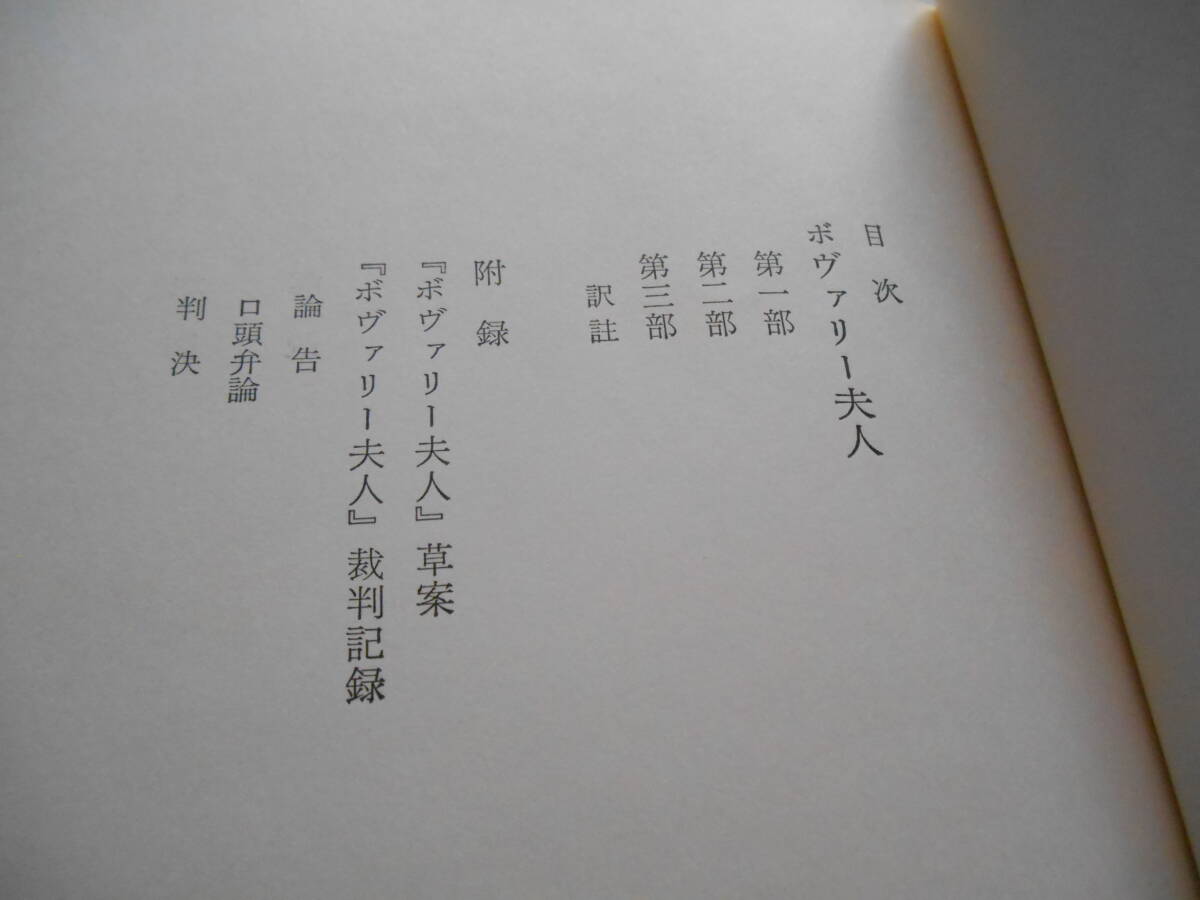 目次
ボヴァリー夫人
第一部
第二部
第三部
訳註
附録
『ボヴァリー夫人』草案
『ボヴァリー夫人』裁判記録
論告
口頭弁論
判決